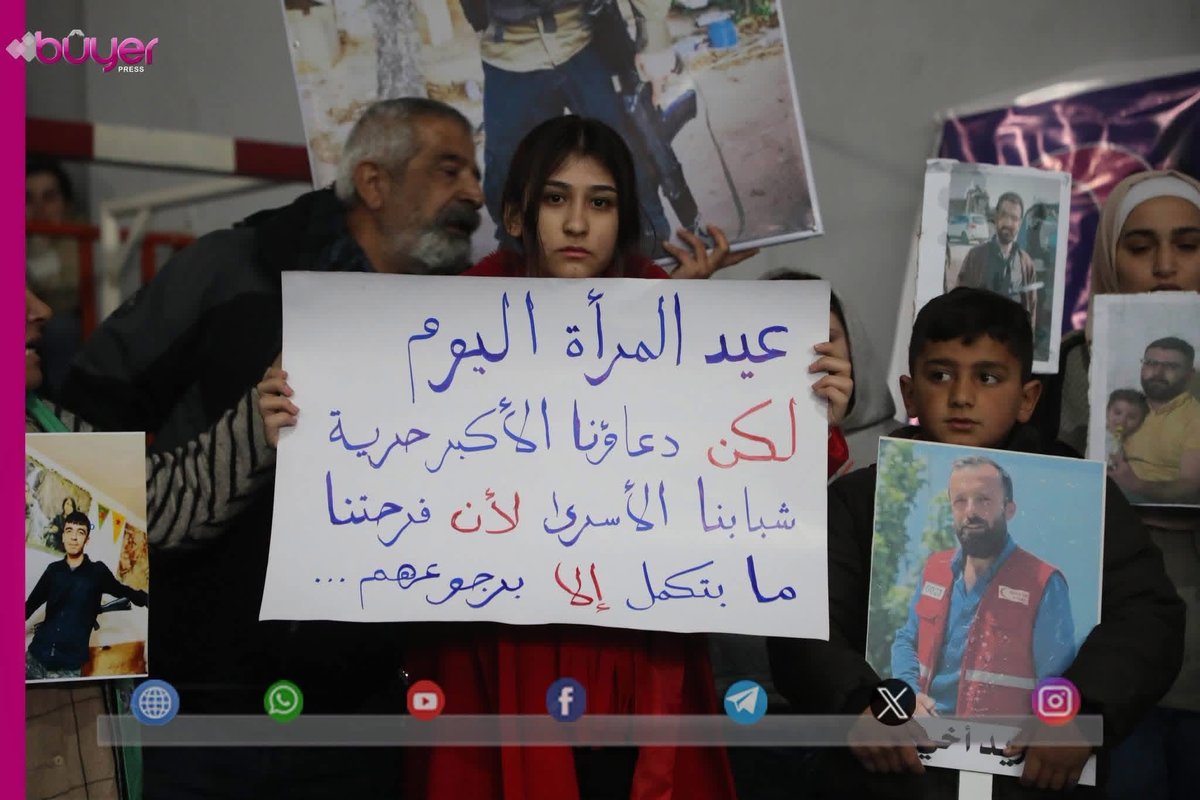 bûyer
PRESS
عيد المرأة اليوم
لكن دعاؤنا الأكبر حرية
شبابنا الأسرى لأن فرحتنا
ما بتكمل إلا برجوعهم ...